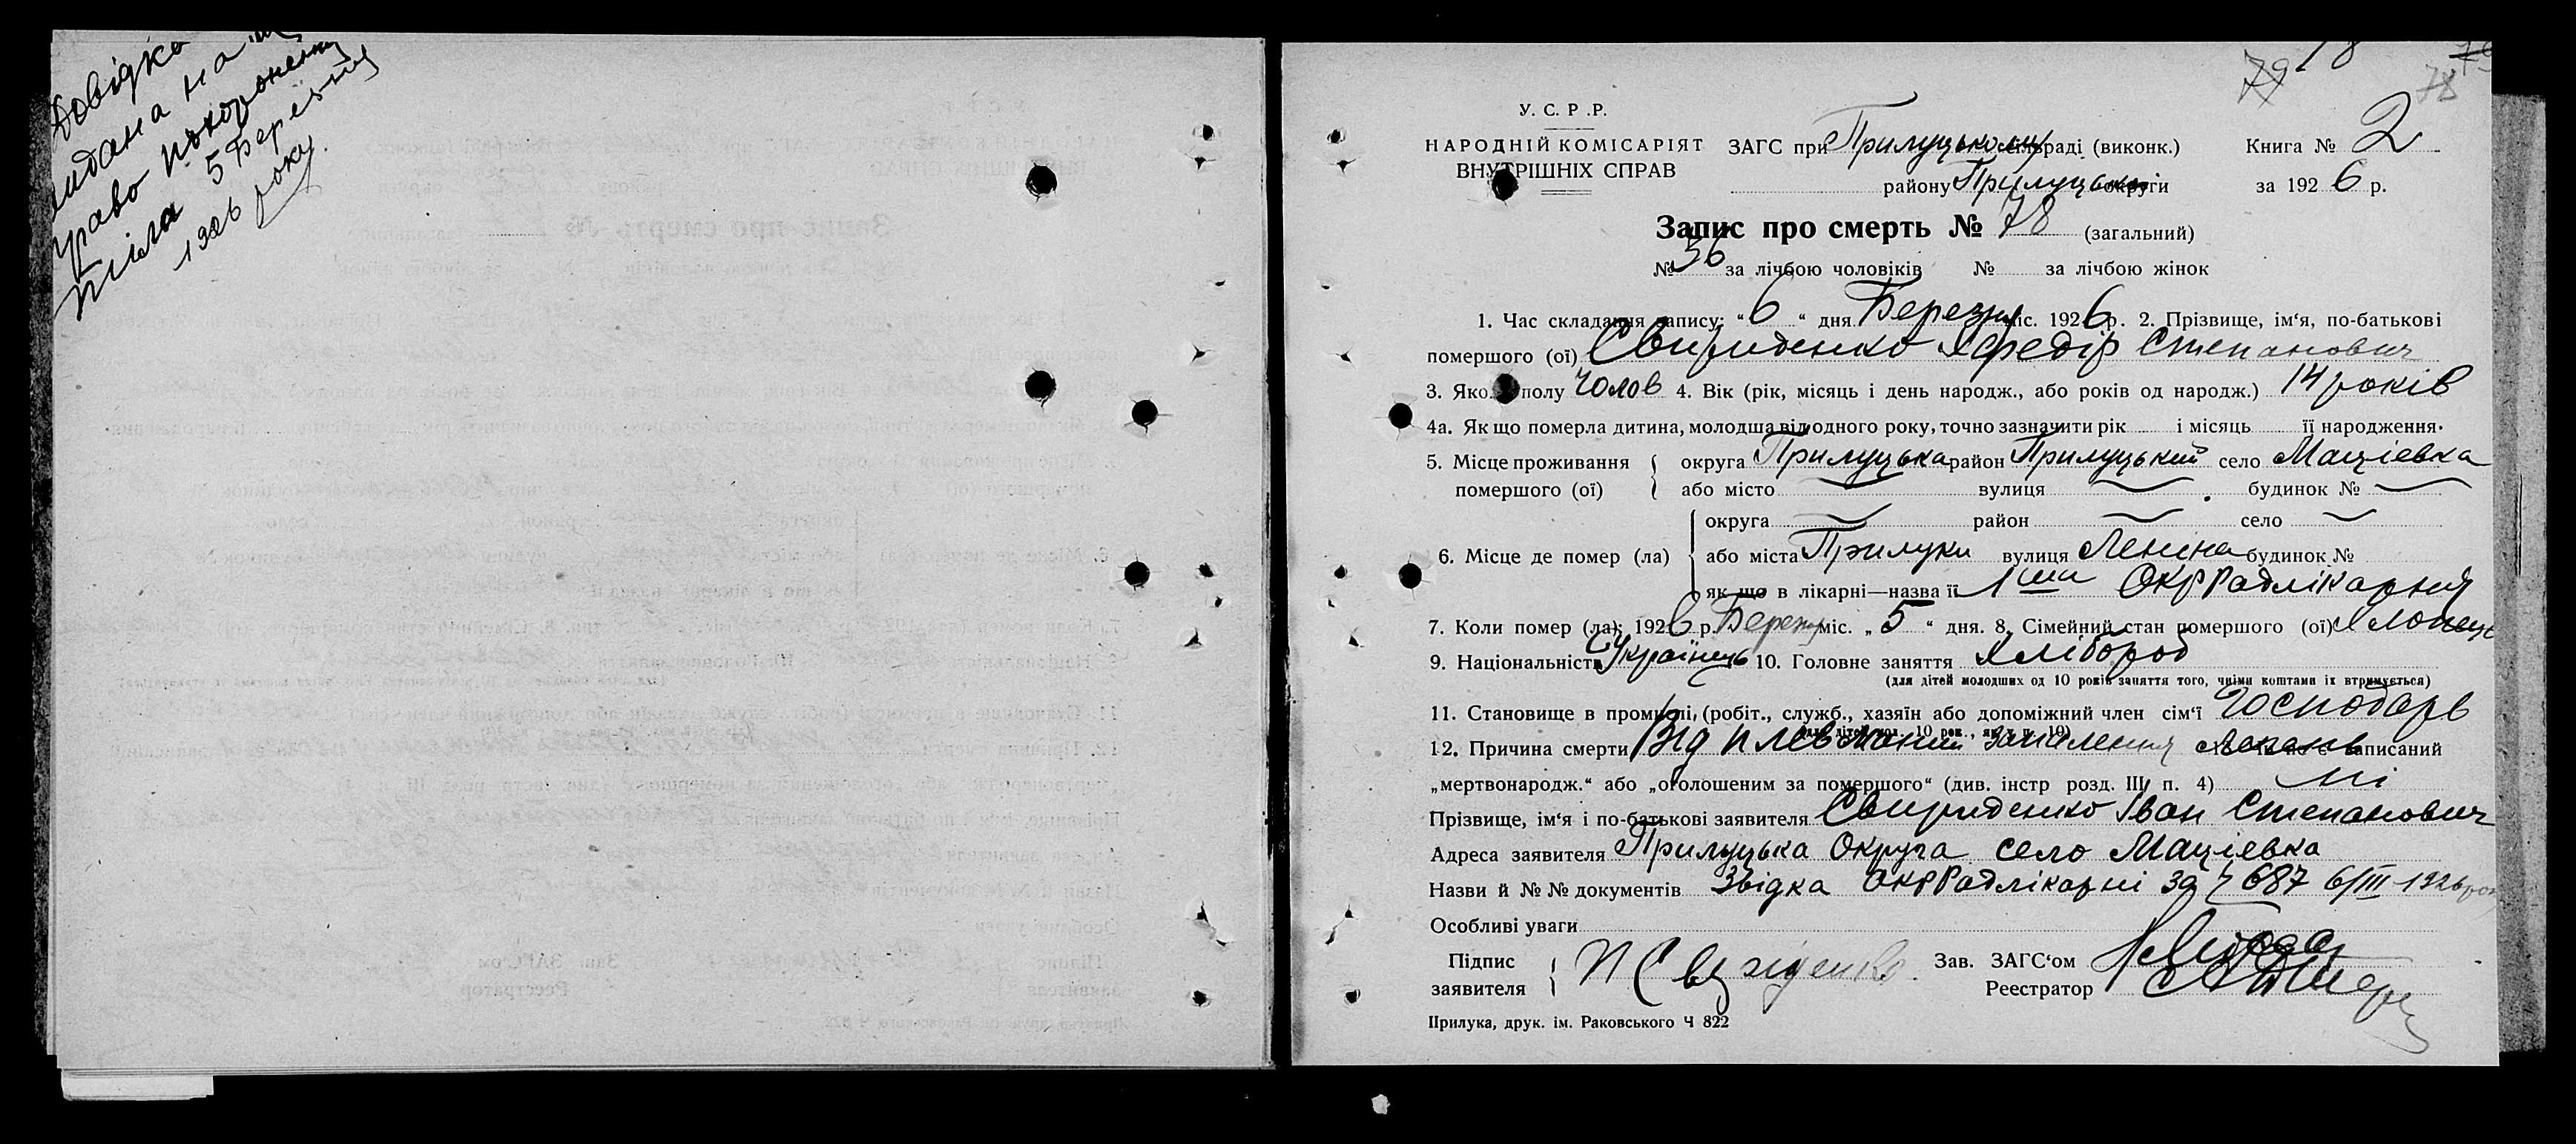 Довідка
видана на
право похоронення
тіла 5 Березня
1926 року.
79 78
У. С. Р .Р.
НАРОДНІЙ КОМІСАРІЯТ
ВНУТРІШНІХ СПРАВ
ЗАГС при Прилуцькому сільраді (виконк.)
Книга № 2
району Прилуцької округи
за 1926 р.
Запис про смерть № 78 (загальний)
№ 36 за лічбою чоловіків № за лічбою жінок
1. Час складання запису: “ 6 “ дня Березня міс. 1926 р. 2. Прізвище, ім‘я, по-батькові
помершого (ої) Свириденко Хфедір Степанович
3. Якого полу Чолов 4. Вік (рік, місяць і день народж., або років од народж.) 14 років
4а. Як що померла дитина, молодша від одного року, точно зазначити рік і місяць її народження.
5. Місце проживання помершого (ої) { округа Прилуцька район Прилуцький село Маціевка
або місто — вулиця — будинок № —
округа — район — село —
6. Місце де помер (ла) або міста Прилуки вулиця Леніна будинок №
як що в лікарні—назва її 1ша ОкрРадлікарня
7. Коли помер (ла): 1926 р. Березня міс. „ 5 “ дня. 8. Сімейний стан помершого (ої) Хлопець
9. Національність Українець 10. Головне заняття Хлібороб
(для дітей молодших од 10 років заняття того, чиїми коштами їх втримується)
11. Становище в промислі, (робіт., служб., хазяїн або допоміжний член сім‘ї Господарь
(для дітей мол. 10 рок., як у п. 10)
12. Причина смерти Від запалення записаний
„мертвонародж.“ або „оголошеним за помершого“ (див. інстр розд. III п. 4) ні
Прізвище, ім‘я і по-батькові заявителя Свириденко Іван Степанович
Адреса заявителя Прилуцька Округа село Маціевка
Назви й № № документів Звідка ОкрРадлікарні за Ч 687 6/III 1926 рок
Особливі уваги
Підпис заявителя { Свириденко
Зав. ЗАГС‘ом
Реестратор
Прилука, друк. ім. Раковського Ч 822